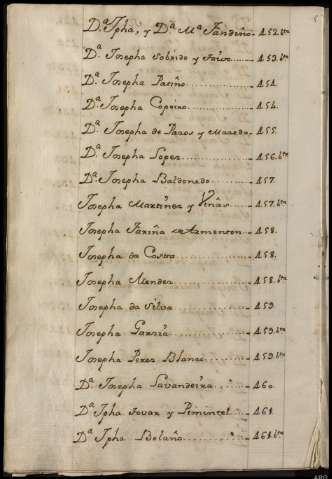 D.ª Jpha, y D.ª M.ª Fandiño. 452.bto
D.ª Josepha Sobrido y 453.bto
D.ª Josepha Patiño 454.
D.ª Josepha Copeiro 454.
D.ª Josepha de Pazos y 455.
D.ª Josepha Lopez 456.bto
D.ª Josepha Baldonedo 457.
Josepha Martinez y Viñas 457.bto
Josepha Fariña 458.
Josepha da Costa 458.
Josepha Mendez 458.bto
Josepha da Silva 459
Josepha Garzia 459.bto
Josepha Perez Blanco 459.bto
D.ª Josepha Lavandeira 460
D.ª Jpha Tovar y Pimintel 461.
D.ª Jpha Bolaño 461.bto